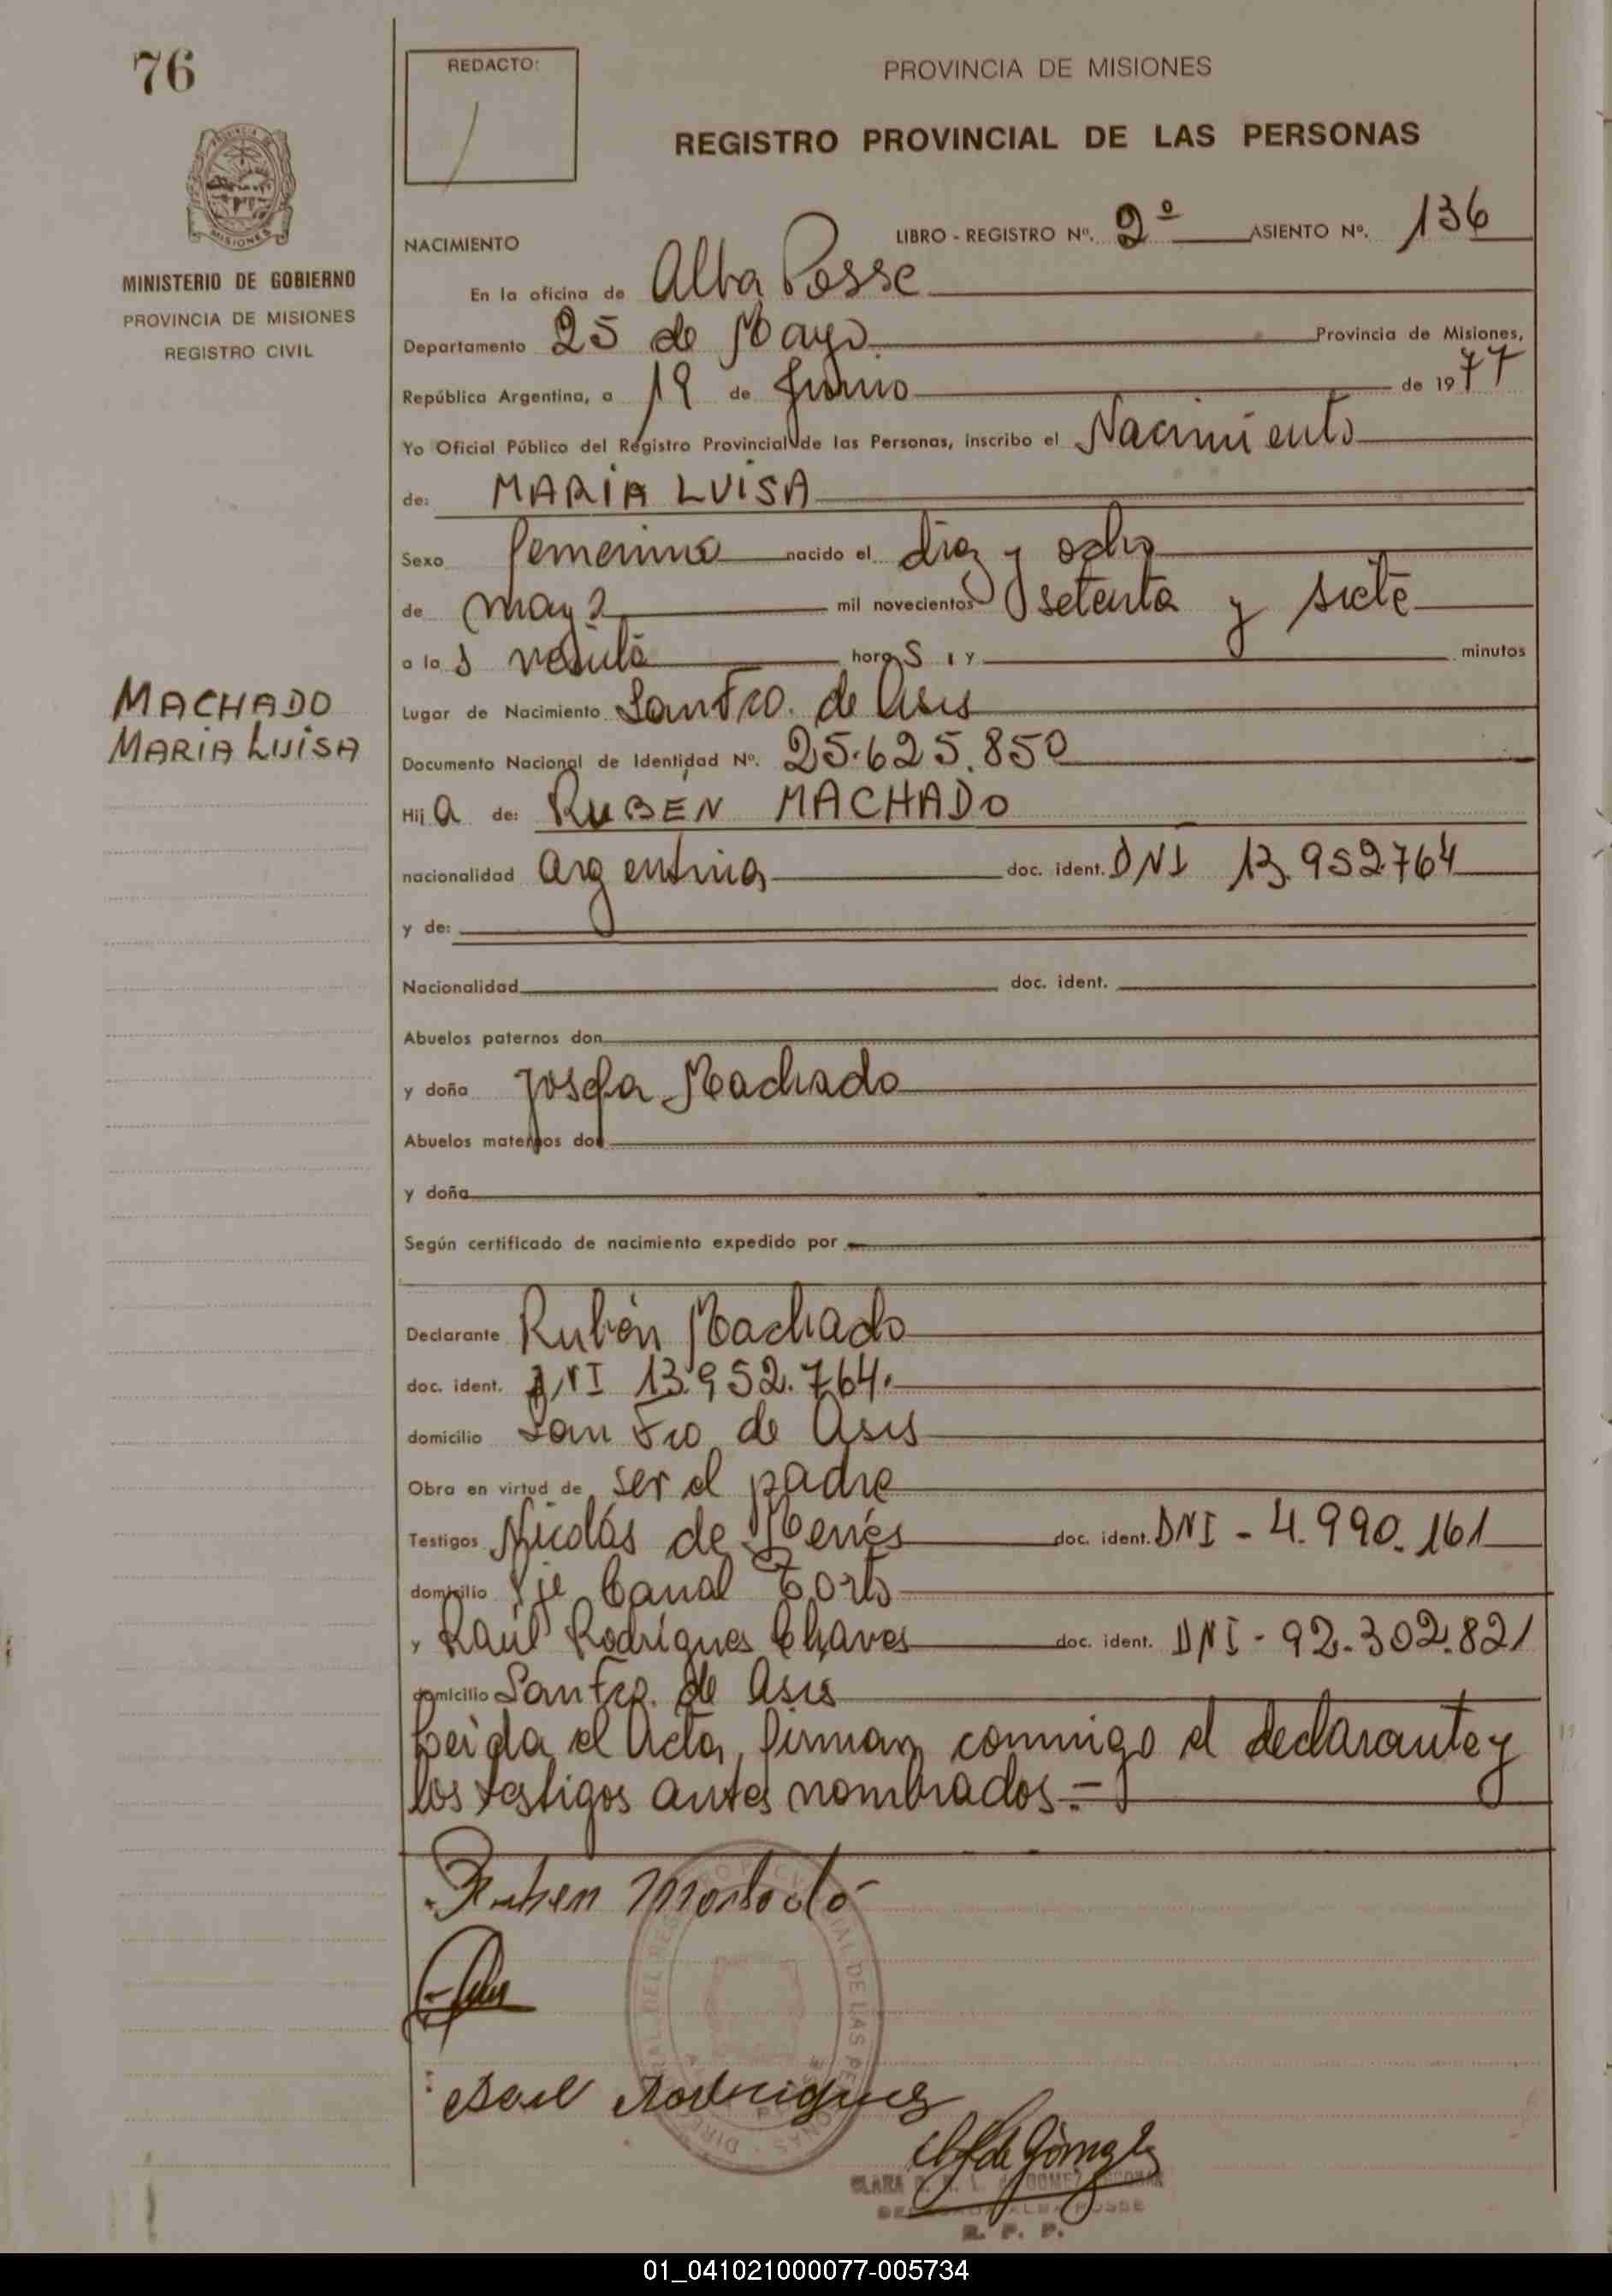 76
REDACTO:
PROVINCIA DE MISIONES
REGISTRO PROVINCIAL DE LAS PERSONAS
MISIONES
MINISTERIO DE GOBIERNO
PROVINCIA DE MISIONES
REGISTRO CIVIL
NACIMIENTO LIBRO - REGISTRO Nº. 2º ASIENTO Nº. 136
En la oficina de Alba Posse
Departamento 25 de Mayo Provincia de Misiones,
República Argentina, a 19 de Junio de 1977
Yo Oficial Público del Registro Provincial de las Personas, inscribo el Nacimiento
de: MARIA LUISA
Sexo femenino nacido el diez y ocho
de mayo mil novecientos setenta y siete
a las veinte horas y minutos
MACHADO
MARIA LUISA
Lugar de Nacimiento San Fco. de Asis
Documento Nacional de Identidad Nº. 25.625.850
Hija de: RUBEN MACHADO
nacionalidad argentina doc. ident. DNI 13.952764
y de:
Nacionalidad doc. ident.
Abuelos paternos don
y doña Josefa Machado
Abuelos maternos don
y doña
Según certificado de nacimiento expedido por
Declarante Rubén Machado
doc. ident. DNI 13.952.764.
domicilio San Fco de Asis
Obra en virtud de ser el padre
Testigos Nicolás de doc. ident. DNI - 4.990.161
domicilio Pje Canal Torto
y Raúl Rodrigues Chaves doc. ident. DNI - 92.302.821
domicilio San Fco. de Asis
Leida el Acta, firman conmigo el declarante y
los testigos antes nombrados. -
Ruben Machado
Rodrigues
de Gómez
CLARA GOMEZ ESCOBAR
ALBA POSSE
R. P. P.
01_041021000077-005734